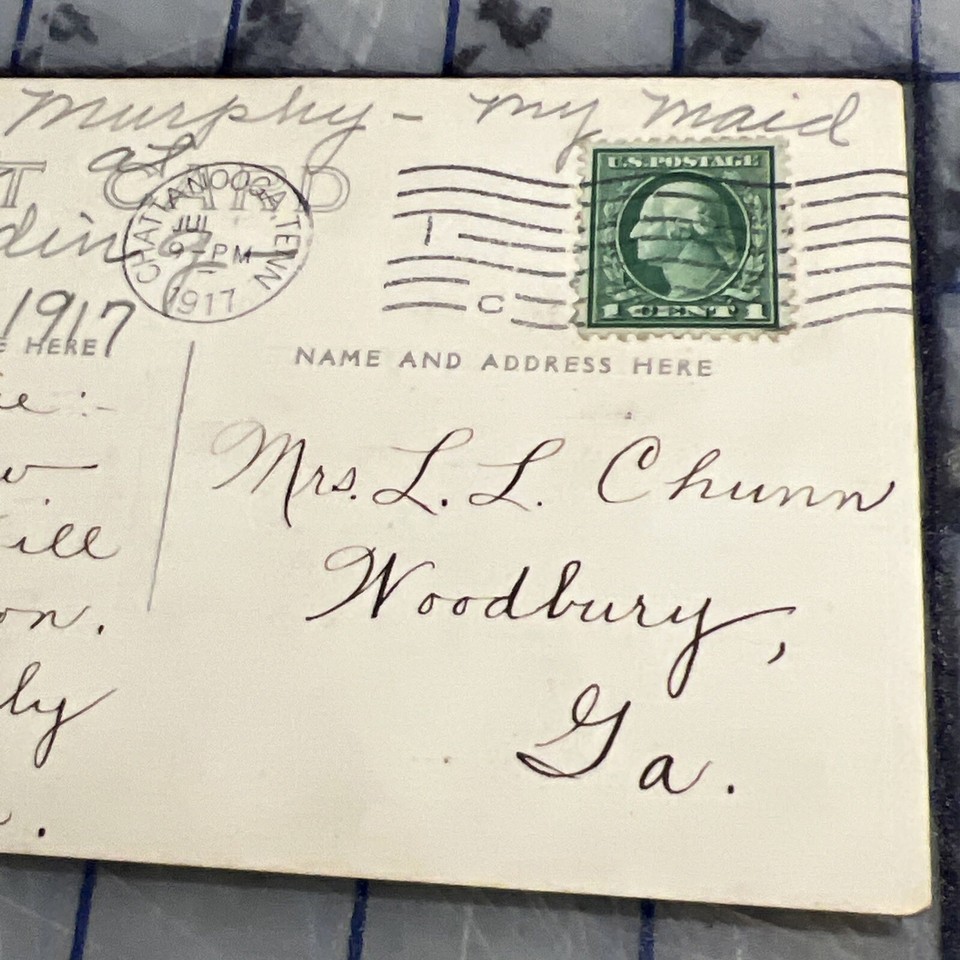 Murphy - my maid
at
T CARD
CHATTANOOGA, TENN
JUL
9-PM
1917
1
C
U.S. POSTAGE
1 CENT 1
1917
E HERE
NAME AND ADDRESS HERE
Mrs. L. L. Chunn
ill
Woodbury,
on.
ly
Ga.